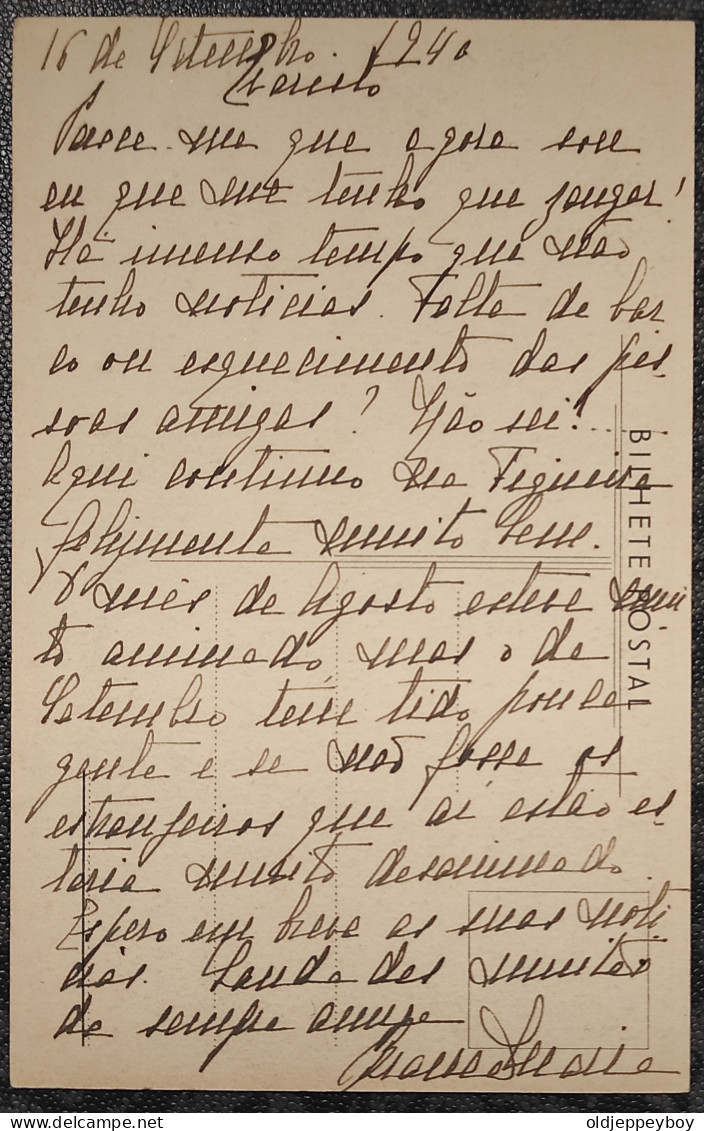 16 de Setembro. 1940
Evaristo
Parece-me que agora sou
eu que me tenho que zangar!
Há imenso tempo que não
tenho noticias. Falta de bar
co ou esquecimento das pes-
soas amigas? Não sei!...
Aqui continuo na Figueira
felizmente muito bem.
O mês de Agosto esteve mui
to animado mas o de
Setembro têm tido pouca
gente e se não fosse os
estranjeiros que aí estão es-
taria muito desanimado.
Espero em breve as suas noti
cias. Saudades muitas
da sempre amiga
Maria
BILHETE POSTAL
oldjeppeyboy